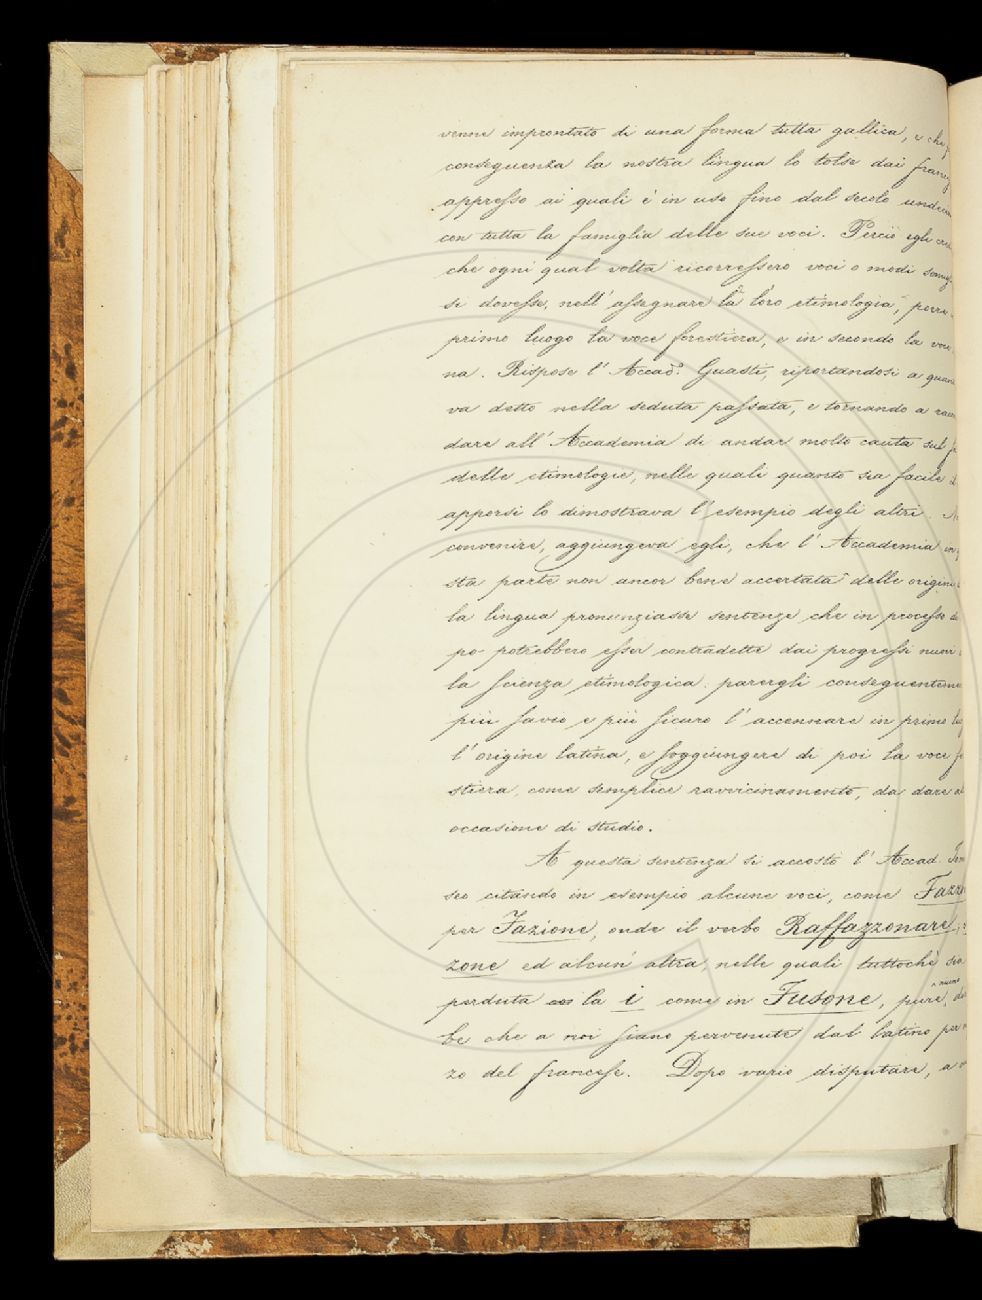 venne improntato di una forma tutta gallica, e che
conseguenza la nostra lingua lo tolse dai
appresso ai quali è in uso fino dal secolo
con tutta la famiglia delle sue voci. Perciò egli
che ogni qual volta ricorressero voci o modi
si dovesse, nell' assegnare la loro etimologia,
primo luogo la voce forestiera, e in secondo la
na. Rispose l' Accad.º Guasti, riportandosi a
va detto nella seduta passata, e tornando a
dare all' Accademia di andar molto cauta sul
delle etimologie, nelle quali quanto sia facile
apporsi lo dimostrava l' esempio degli altri.
convenire, aggiungeva egli, che l' Accademia in
sta parte non ancor bene accertata delle
la lingua pronunziasse sentenze che in processo
po potrebbero esser contradette dai progressi
la scienza etimologica: parergli
più savio e più sicuro l' accennare in primo
l' origine latina, e soggiungere di poi la voce
stiera, come semplice ravvicinamento, da dare
occasione di studio.
A questa sentenza si accostò l' Accad.
seo citando in esempio alcune voci, come
per Fazione, onde il verbo Raffazzonare,
zone ed alcun' altra, nelle quali tuttochè sia
perduta la i come in Fusone, pure,
be che a noi siano pervenute dal latino per
zo del francese. Dopo vario disputare, a